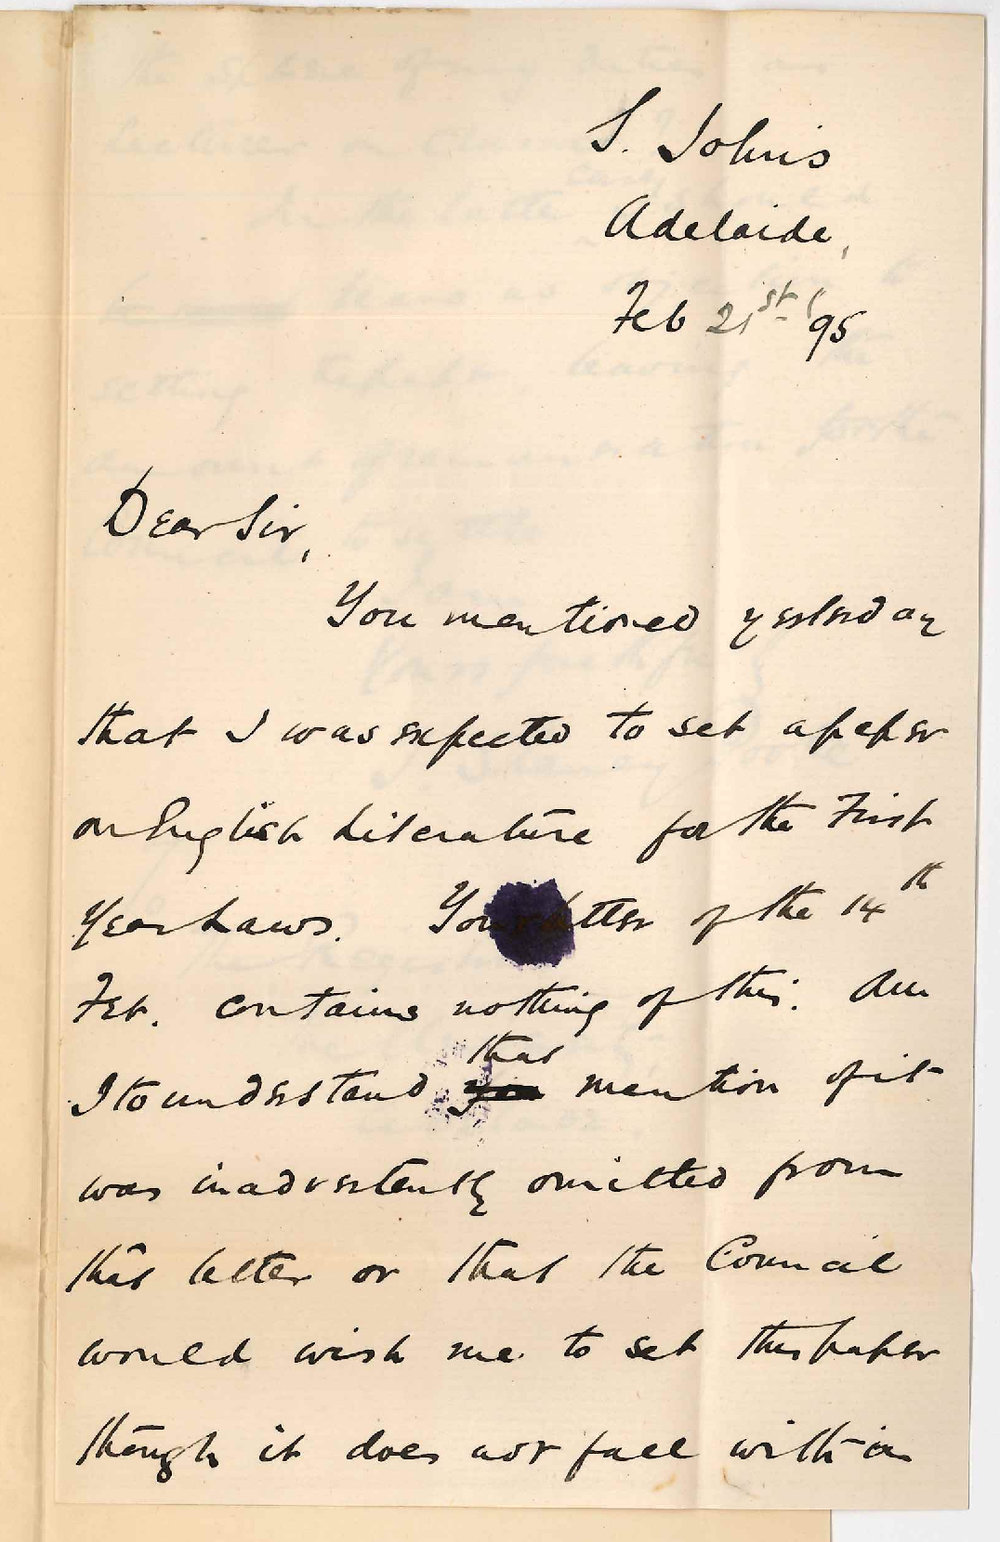 S. John's
Adelaide,
Feb 21st '95
Dear Sir,
You mentioned yesterday
that I was expected to set a paper
on English Literature for the First
Year Laws. Your letter of the 14th
Feb. contains nothing of this. Am
I to understand that mention of it
was inadvertently omitted from
this letter or that the Council
would wish me to set this paper
though it does not fall within